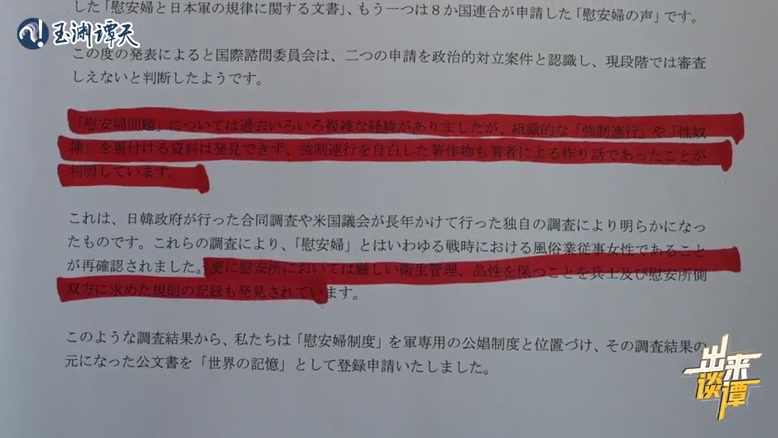 玉渊谭天
した「慰安婦と日本軍の規律に関する文書」、もう一つは８か国連合が申請した「慰安婦の声」です。
この度の発表によると国際諮問委員会は、二つの申請を政治的対立案件と認識し、現段階では審査
しえないと判断したようです。
「慰安婦問題」については過去いろいろ複雑な経緯がありましたが、組織的な「強制連行」や「性奴
隷」を裏付ける資料は発見できず、強制連行を自白した著作物も著者による作り話であったことが
判明しています。
これは、日韓政府が行った合同調査や米国議会が長年かけて行った独自の調査により明らかになっ
たものです。これらの調査により、「慰安婦」とはいわゆる戦時における風俗業従事女性であること
が再確認されました。更に慰安所においては厳しい衛生管理、品性を保つことを兵士及び慰安所側
双方に求めた規則の記録も発見されています。
このような調査結果から、私たちは「慰安婦制度」を軍専用の公娼制度と位置づけ、その調査結果の
元になった公文書を「世界の記憶」として登録申請いたしました。
出来
谈谭